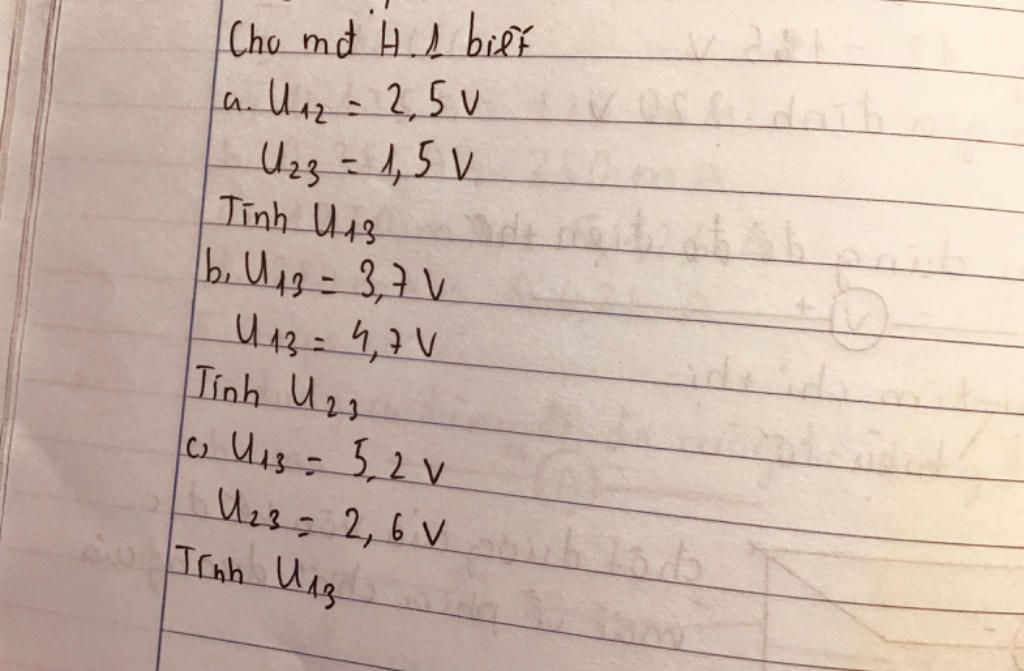 Cho mđ H.1 biết
a. U12 = 2,5 V
U23 = 1,5 V
Tính U13
b, U13 = 3,7 V
U13 = 4,7 V
Tính U23
c, U13 = 5,2 V
U23 = 2,6 V
Tính U13